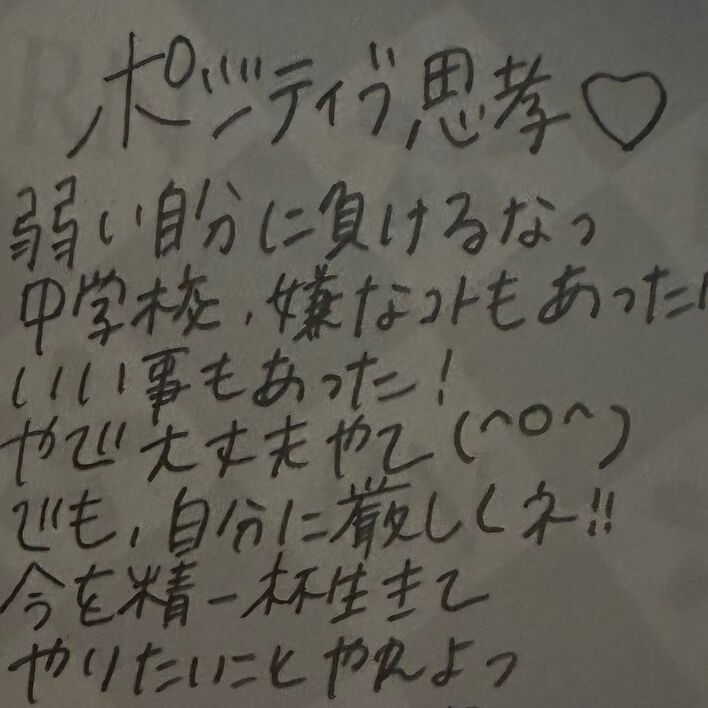 ポジティブ思考♡
弱い自分に負けるなっ
中学校、嫌なコトもあった!
いい事もあった!
やで大丈夫やて(^o^)
でも、自分に厳しくネ!!
今を精一杯生きて
やりたいことやれよっ